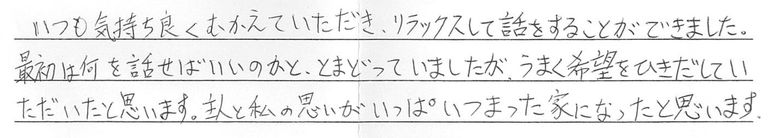 いつも気持ち良くむかえていただき、リラックスして話をすることができました。
最初は何を話せばいいのかと、とまどっていましたが、うまく希望をひきだしてい
ただいたと思います。主人と私の思いがいっぱいつまった家になったと思います。